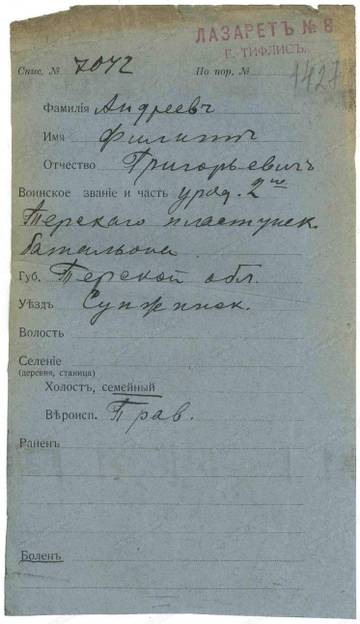 ЛАЗАРЕТЪ № 8
Г. ТИФЛИСЪ.
Спис. № 7042 По пор. № 1427
Фамилія Андреевъ
Имя Филиппъ
Отчество Григорьевичъ
Воинское званіе и часть уряд. 2го
Терскаго пластунск.
батальона
Губ. Терской обл.
Уѣздъ Сунжинск.
Волость
Селеніе
(деревня, станица)
Холостъ, семейный
Вѣроисп. Прав.
Раненъ
Боленъ